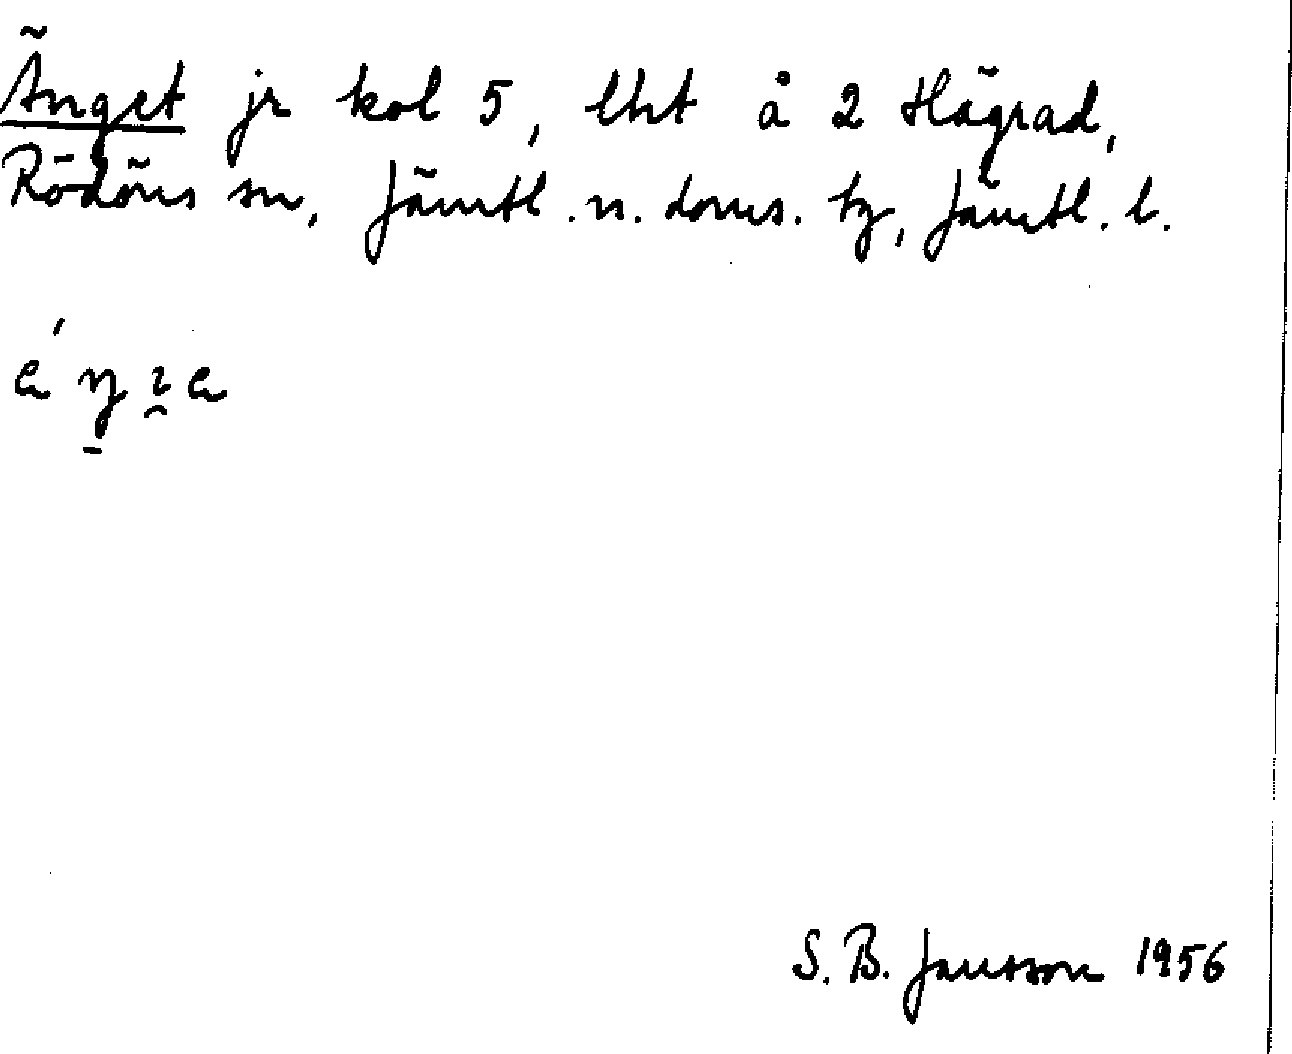 Änget jr kol 5, lht å 2 Hägrad,
Rödöns sn, Jämtl. n. doms. tg, Jämtl. l.
S. B. Jansson 1956